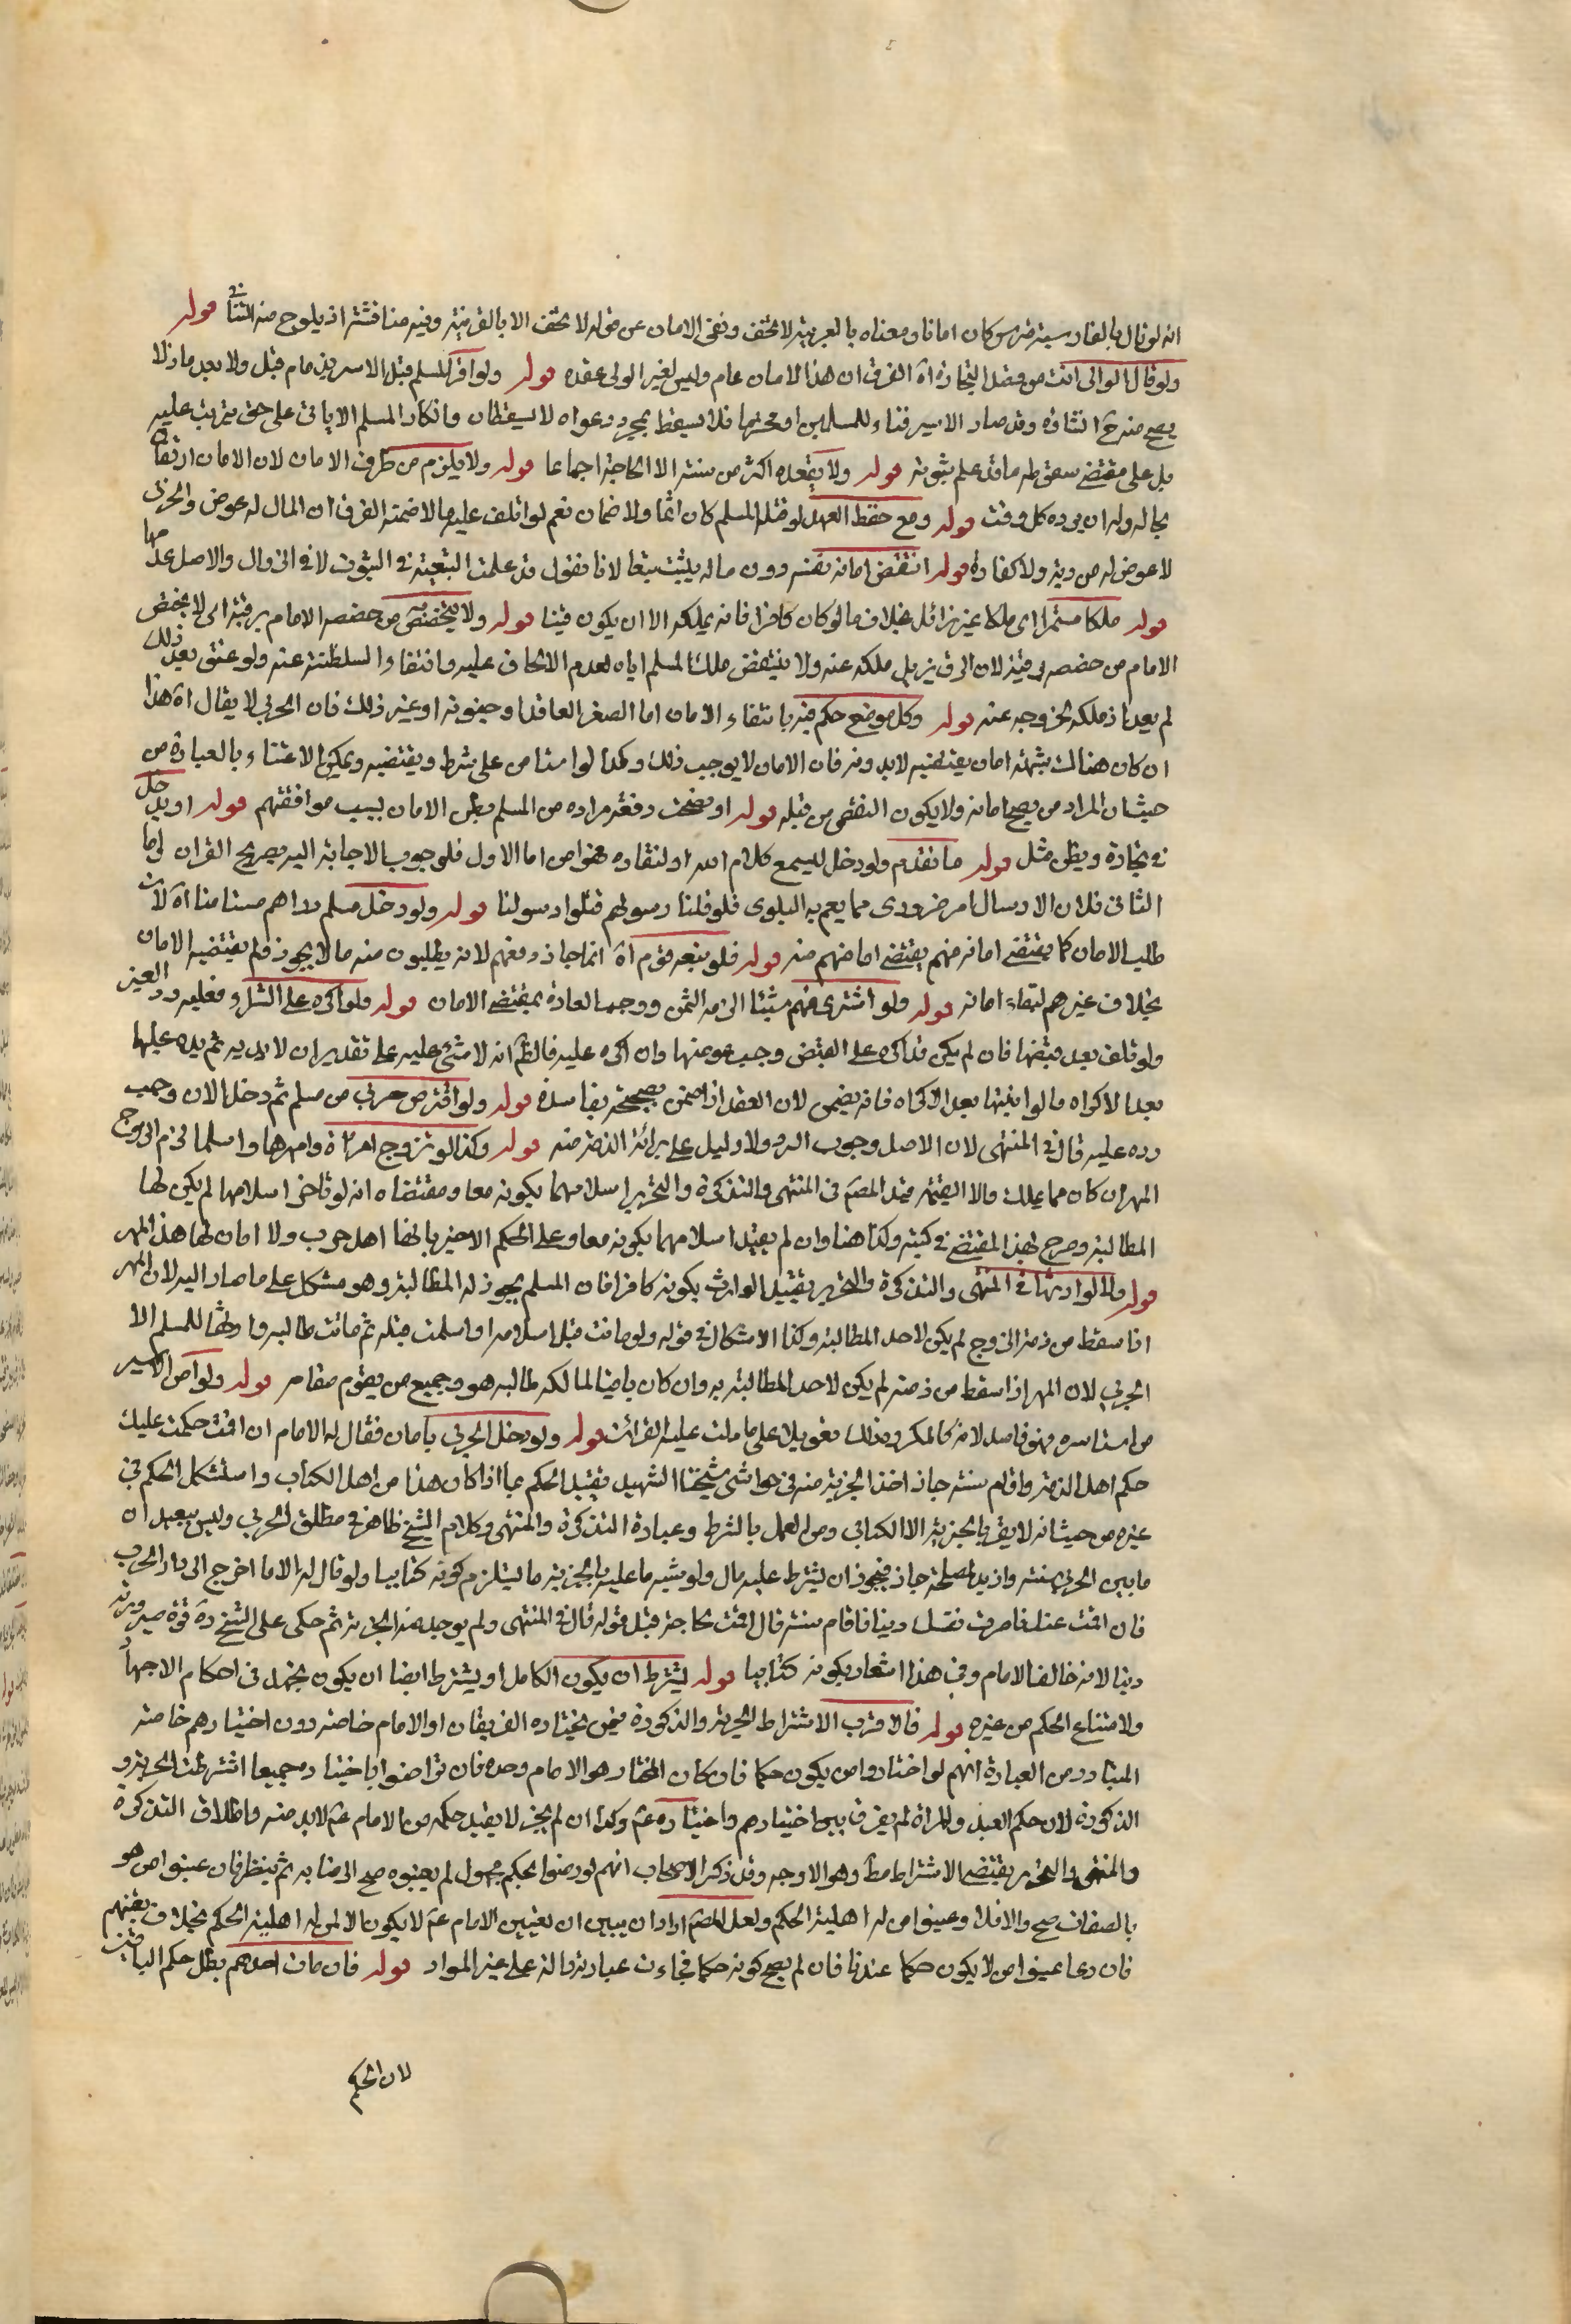 انه لو قال بالفارسية مترس كان امانا ومعناه بالعربية لا تخف ونفى الامان عن قوله لا تخف الا بالقرينة وفيه مناقشة اذ يلوح منه التنافي قوله
ولو قال الوالى امنت من قصد التجارة اه الفرق ان هذا الامان عام وليس لغير الوالى عقده قوله ولو اقر المسلم قبل الاسر بذمام قبل ولا بعد ما ذلا
يصح منه ح انشاؤه وقد صار الاسير فناء للمسلمين او محترما فلا يسقط بمجرد دعواه لا يسقطان وانكار المسلم الا ياتى على حق يترتب عليه
بل على مقتضى سقوطه ما قد علم ثبوته قوله ولا يعقده اكثر من سنة الا لحاجة اجماعا قوله ولا يلزم من طرف الامان لان الامان ارتفاق
بحاله وله ان يرده كل وقت قوله ومع حفظ العهد لو قتله المسلم كان اثما ولا ضمان نعم لو اتلف عليه مالا ضمنه الفرق ان المال له عوض والحربى
لا عوض له من دية ولا كفارة قوله انتقض امانه لنفسه دون ماله يثبت تبعا لانا نقول قد علمت التبعية فى الثبوت لا فى الزوال والاصل عدمها
قوله ملكا مستمرا اى ملكا غير زائل بخلاف ما لو كان كافرا فانه يملكه الا ان يكون فيئا قوله ولا يتخصص من خصصه الامام برقبته اى لا يختص
الامام من خصصه برقبته لان الرق يزيل ملكه عنه ولا ينتقض ملك المسلم اياه لعدم الايجاف عليه وانتفاء السلطنة عنه ولو عتق بعد ذلك
لم يعد اذ ملكه لخروجه عنه قوله وكل موضع حكم فيه بانتفاء الامان اما الصغر العاقد او جنونه او غير ذلك فان الحربى لا يقال اه هذا
ان كان هناك شبهة امان يقتضيه لا بدونه فان الامان لا يوجب ذلك وكذا لو امنا من على شرط ويقتضيه ويمكن الاعتناء بالعبارة من
حيث ان المراد من يصح امانه ولا يكون النقص من قبله قوله او نضحت دفعة مراده من المسلم بطل الامان بسبب موافقتهم قوله او يدخل
فى تجارة ويظن مثل قوله ما تقدم ولو دخل ليسمع كلام الله او لسفارة فهو امن اما الاول فلوجوب الاجابة اليه بصريح القران واما
الثانى فلان الارسال امر ضرورى مما يعم به البلوى فلو قتلنا رسولهم قتلوا رسولنا قوله ولو دخل مسلم دارهم مستامنا اه لان
طلب الامان كما يقتضى امانه منهم يقتضى امانهم منه قوله فلو تبعه قوم اه انما جاز دفعهم لانه يطلبون منه ما لا يجوز فلم يقتضيه الامان
بخلاف غيرهم لبقاء امانه قوله ولو اشترى منهم شيئا الزمه الثمن ووجب العادة بمقتضى الامان قوله فلو اكره على الشراء فعليه رد العين
ولو تلف بعد قبضها فان لم يكن قد اكره على القبض وجب عوضها وان اكره عليه فالظ انه لا شئ عليه على تقدير ان لا يد به ثم يده عليها
بعد الاكراه ما لو اثبتها بعد الاكراه فانه يضمن لان العقد اذا ضمن بصحيحه بفاسده قوله ولو اقترض حربى من مسلم ثم دخل الان وجب
رده عليه قال فى المنتهى لان الاصل وجوب الرد ولا دليل على برائة الذمة منه قوله وكذا لو تزوج امراة وامهرها واسلما لزم الزوج
المهر ان كان مما يملك والا القيمة قيد المصنف فى المنتهى والتذكرة والتحرير اسلامهما بكونه معا ومقتضاه انه لو تاخر اسلامها لم يكن لها
المطالبة وصرح بهذا المقتضى فى كتبه وكذا هنا وان لم يقيد اسلامهما بكونه معا وعلى الحكم الاخير بانها اهل حرب ولا امان لها هذا المهر
قوله ولا لوارثها فى المنتهى والتذكرة والتحرير بقييد الوارث بكونه كافرا فان المسلم يجوز له المطالبة وهو مشكل على ما صار اليه لان المهر
اذا سقط من ذمة الزوج لم يكن لاحد المطالبة وكذا الاشكال فى قوله ولو ماتت قبل اسلامه او اسلمت قبله ثم ماتت طالبه وارثها المسلم لا
الحربى لان المهر اذا سقط من ذمته لم يكن لاحد المطالبة به وان كان باقيا لمالكه طالبه هو وجميع من يقوم مقامه قوله ولو امن الاسير
من استاسره فهو فاسد لانه كالمكره فى ذلك تعويلا على ما دلت عليه القرائن قوله ولو دخل الحربى بامان فقال له الامام ان اقمت حكمت عليك
حكم اهل الذمة واقام سنة جاز اخذ الجزية منه فى حواشى شيخنا الشهيد تقييد الحكم بما اذا كان هذا من اهل الكتاب واستشكل الحكم فى
غيره من حيث انه لا يقر بالجزية الا الكتابى ومن العمل بالشرط وعبارة التذكرة والمنتهى وكلام الشيخ ظاهر فى مطلق الحربى وليس ببعيد ان
مابين الحربى سنة وازيد لمصلحة جاز فيجوز ان يشترط عليه مال ولو شبه ما عليه بالجزية ما ليستلزم كونه كتابيا ولو قال له الاما اخرج الى دار الحرب
فان اقمت عندنا صرت نفسك دينا فاقام سنة قال اقمت لحاجة قبل قوله قال فى المنتهى ولم يوجد منه الجزية ثم حكى على الشيخ ره قوة صيرورته
دينا لانه خالف الامام وفى هذا اشعار بكونه كتابيا قوله يشترط ان يكون الكامل او يشترط ايضا ان يكون مجتهدا فى احكام الاجهاد
ولا متناع الحكم من غيره قوله فالاقرب الاشتراط الحرية والذكورة فيمن يختاره الفريقان او الامام خاصة دون اختيارهم خاصة
المتبادر من العبارة انهم لو اختاروا من يكون حكما فان كان المختار هو الامام وحده فان تراضوا باختياره جميعا اشترطت الحرية و
الذكورة لان حكم العبد والمراة لم يفرق بين اختيارهم واختياره ع وكذا ان لم يجز لا يقيد حكمه من الامام ع لا بد منه واطلاق التذكرة
والمنتهى والتحرير يقتضى الاشتراط مط وهو الاوجه وقد ذكر الاصحاب انهم لو رضوا بحكم مجهول لم يعينوه صح الرضا به ثم ينظر فان عينوا من هو
بالصفات صح والا فلا وعينوا من له اهلية الحكم ولعل المصنف اراد ان يبين ان تعيين الامام ع لا يكون الا لمن له اهلية الحكم بخلاف تعيينهم
فان ربما عينوا من لا يكون حكما عندنا فان لم يصح كونه حكما فجاءت عبارته دالة على غير المراد قوله فان مات احدهم بطل حكم الباقين
لان الحكم